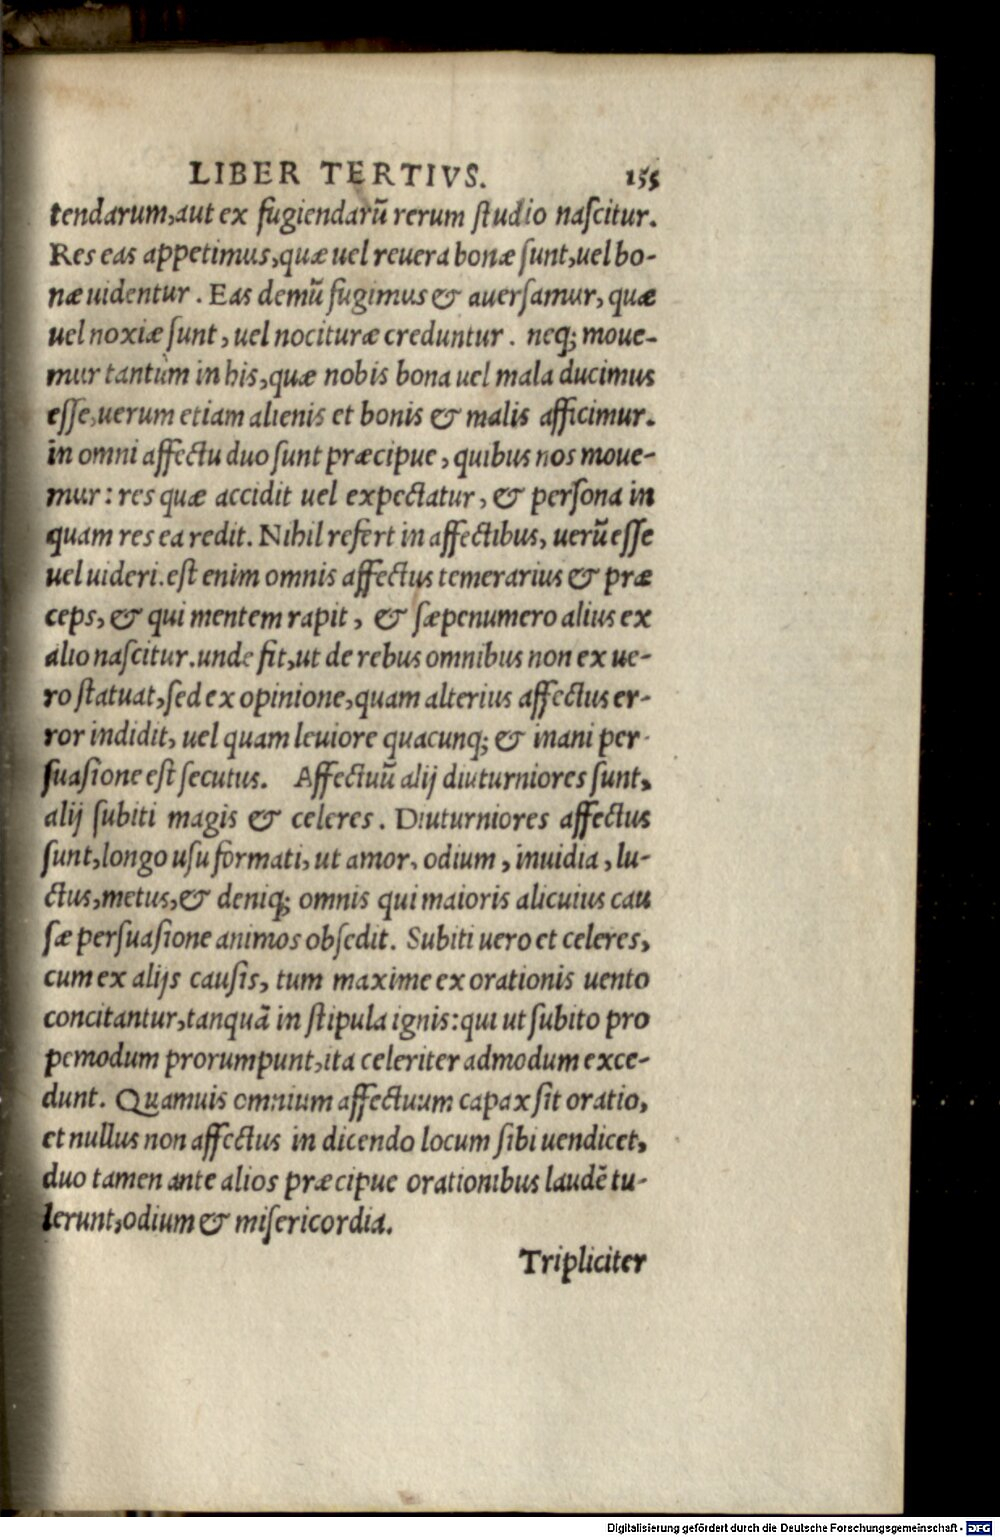 LIBER TERTIVS. 155
tendarum,aut ex fugiendarũ rerum ſtudio naſcitur.
Res eas appetimus,quæ uel reuera bonæ ſunt,uel bo-
næ uidentur. Eas demũ fugimus & auerſamur, quæ
uel noxiæ ſunt, uel nocituræ creduntur. neq; moue-
mur tantùm in his,quæ nobis bona uel mala ducimus
eſſe,uerum etiam alienis et bonis & malis afficimur.
in omni affectu duo ſunt præcipue, quibus nos moue-
mur: res quæ accidit uel expectatur, & perſona in
quam res ea redit. Nihil refert in affectibus, uerũ eſſe
uel uideri. eſt enim omnis affectus temerarius & præ
ceps, & qui mentem rapit, & ſæpenumero alius ex
alio naſcitur. unde fit,ut de rebus omnibus non ex ue-
ro ſtatuat,ſed ex opinione,quam alterius affectus er-
ror indidit, uel quam leuiore quacunq; & inani per-
ſuaſione eſt ſecutus. Affectuũ alij diuturniores ſunt,
alij ſubiti magis & celeres. Diuturniores affectus
ſunt,longo uſu formati, ut amor, odium, inuidia, lu-
ctus,metus,& deniq; omnis qui maioris alicuius cau
ſæ perſuaſione animos obſedit. Subiti uero et celeres,
cum ex alijs cauſis, tum maxime ex orationis uento
concitantur,tanquã in ſtipula ignis: qui ut ſubito pro
pemodum prorumpunt,ita celeriter admodum exce-
dunt. Quamuis omnium affectuum capax ſit oratio,
et nullus non affectus in dicendo locum ſibi uendicet,
duo tamen ante alios præcipue orationibus laudẽ tu-
lerunt,odium & miſericordia.
Tripliciter
Digitalisierung gefördert durch die Deutsche Forschungsgemeinschaft - DFG